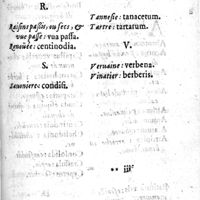 R.
Raisins passis, ou secs, &
vue passe: vua passa.
Renouée: centinodia.
S.
Sauniere: condisi.
Tannesie: tanacetum.
Tartre: tartarum.
V.
Veruaine: verbena.
Vinatier: berberis.
** iij